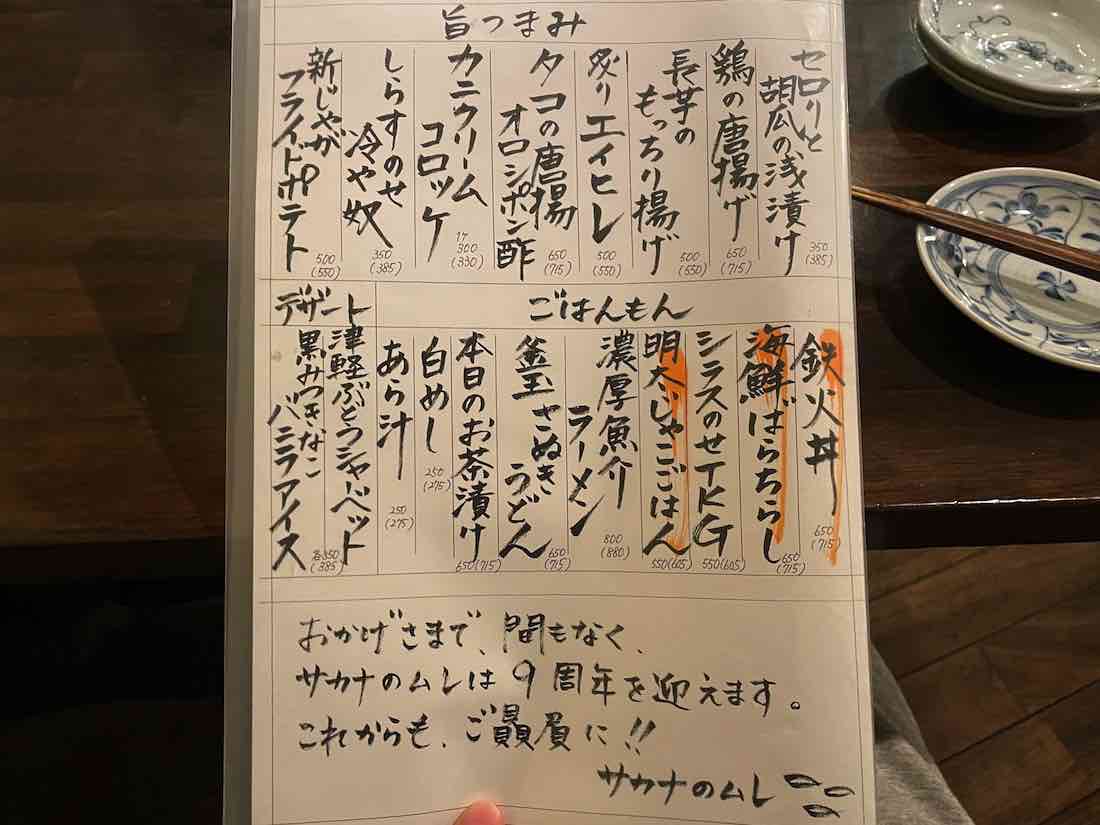 旨つまみ
セロリと
胡瓜の浅漬け
350
(385)
鶏の唐揚げ
650
(715)
長芋の
もっちり揚げ
500
(550)
炙りエイヒレ
500
(550)
タコの唐揚
オロシポン酢
650
(715)
カニクリーム
コロッケ
1ケ
300
(330)
しらすのせ
冷や奴
350
(385)
新じゃが
フライドポテト
500
(550)
ごはんもん
鉄火丼
650
(715)
海鮮ばらちらし
650
(715)
シラスのせTKG
550(605)
明太じゃこごはん
550(605)
濃厚魚介
ラーメン
800
(880)
釜玉さぬき
うどん
650
(715)
本日のお茶漬け
650(715)
白めし
250
(275)
あら汁
250
(275)
デザート
津軽ぶどうシャーベット
黒みつきなこ
バニラアイス
各350
(385)
おかげさまで、間もなく、
サカナのムレは9周年を迎えます。
これからも、ご贔屓に!!
サカナのムレ